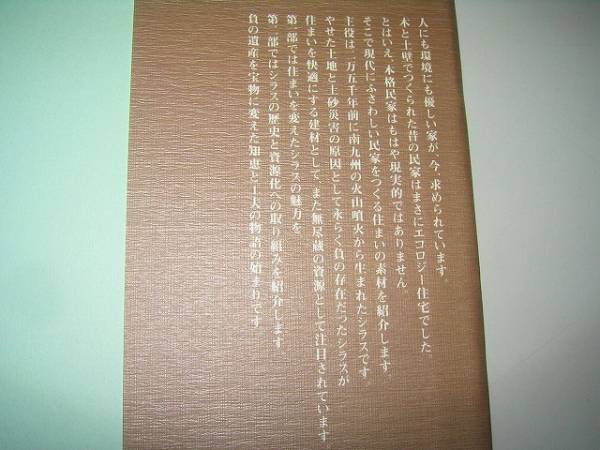 人にも環境にも優しい家が、今、求められています。
木と土壁でつくられた昔の民家はまさにエコロジー住宅でした。
とはいえ、本格民家はもはや現実的ではありません。
そこで現代にふさわしい民家をつくる住まいの素材を紹介します。
主役は二万五千年前に南九州の火山噴火から生まれたシラスです。
やせた土地と土砂災害の原因として永らく負の存在だったシラスが
住まいを快適にする建材として、また無尽蔵の資源として注目されています。
第一部では住まいを変えたシラスの魅力を、
第二部ではシラスの歴史と資源化への取り組みを紹介します。
負の遺産を宝物に変えた知恵と工夫の物語の始まりです。